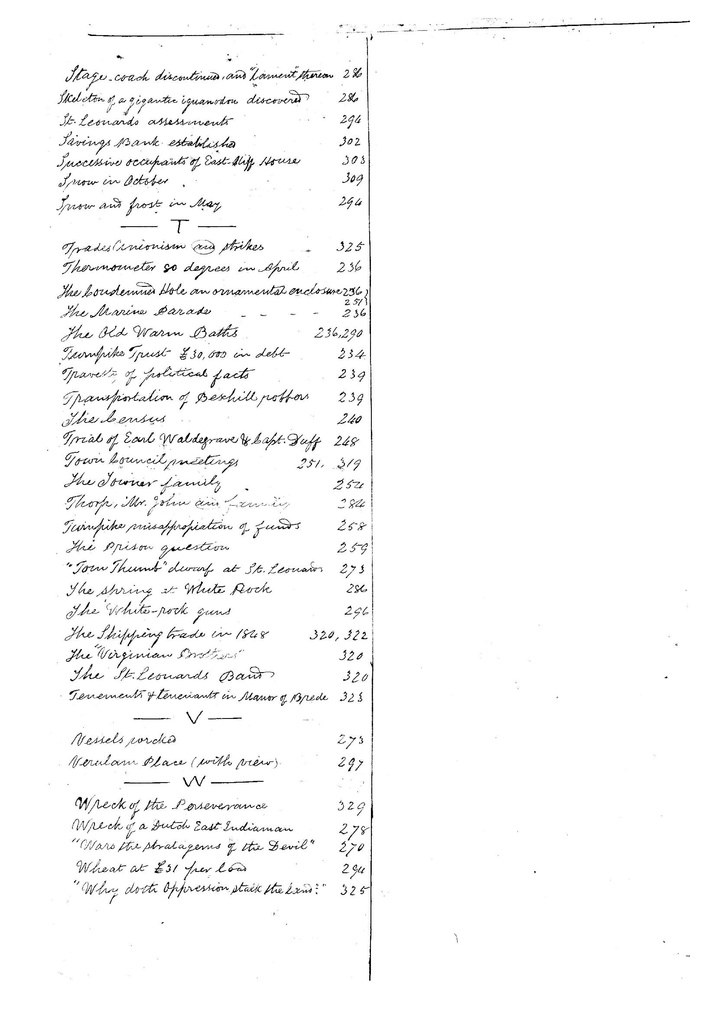 Stage-coach discontinued, and "Lament" thereon 286
Skeleton of a gigantic iguanodon discovered 286
St. Leonards assessments 294
Savings Bank established 302
Successive occupants of East-Cliff House 303
Snow in October 309
Snow and frost in May 294
— T —
Trades Unionism and strikes 325
Thermometer 80 degrees in April 236
The Condemned Hole an ornamental enclosure 236,
251
The Marine Parade - - - - 236
The Old Warm Baths 236, 290
Turnpike Trust £30,000 in debt 234
Travesty of political facts 239
Transportation of Bexhill robbers 239
The Census 240
Trial of Earl Waldegrave & Capt. Duff 248
Town Council meetings 251, 319
The Towner family 254
Thorp, Mr. John and family 284
Turnpike misappropiation of funds 258
The Prison question 259
"Tom Thumb" dwarf at St. Leonards 273
The spring at White Rock 286
The White-rock guns 296
The Shipping trade in 1848 320, 322
The "Virginian Brothers" 320
The St. Leonards Band 320
Tenements & tenciants in Manor of Brede 323
— V —
Vessels 273
Verulam Place (with view) 297
— W —
Wreck of the Perseverance 329
Wreck of a Dutch East Indiaman 278
"Ware the stratagems of the Devil" 270
Wheat at £31 per load 294
"Why doth Oppression stalk the Land?" 325